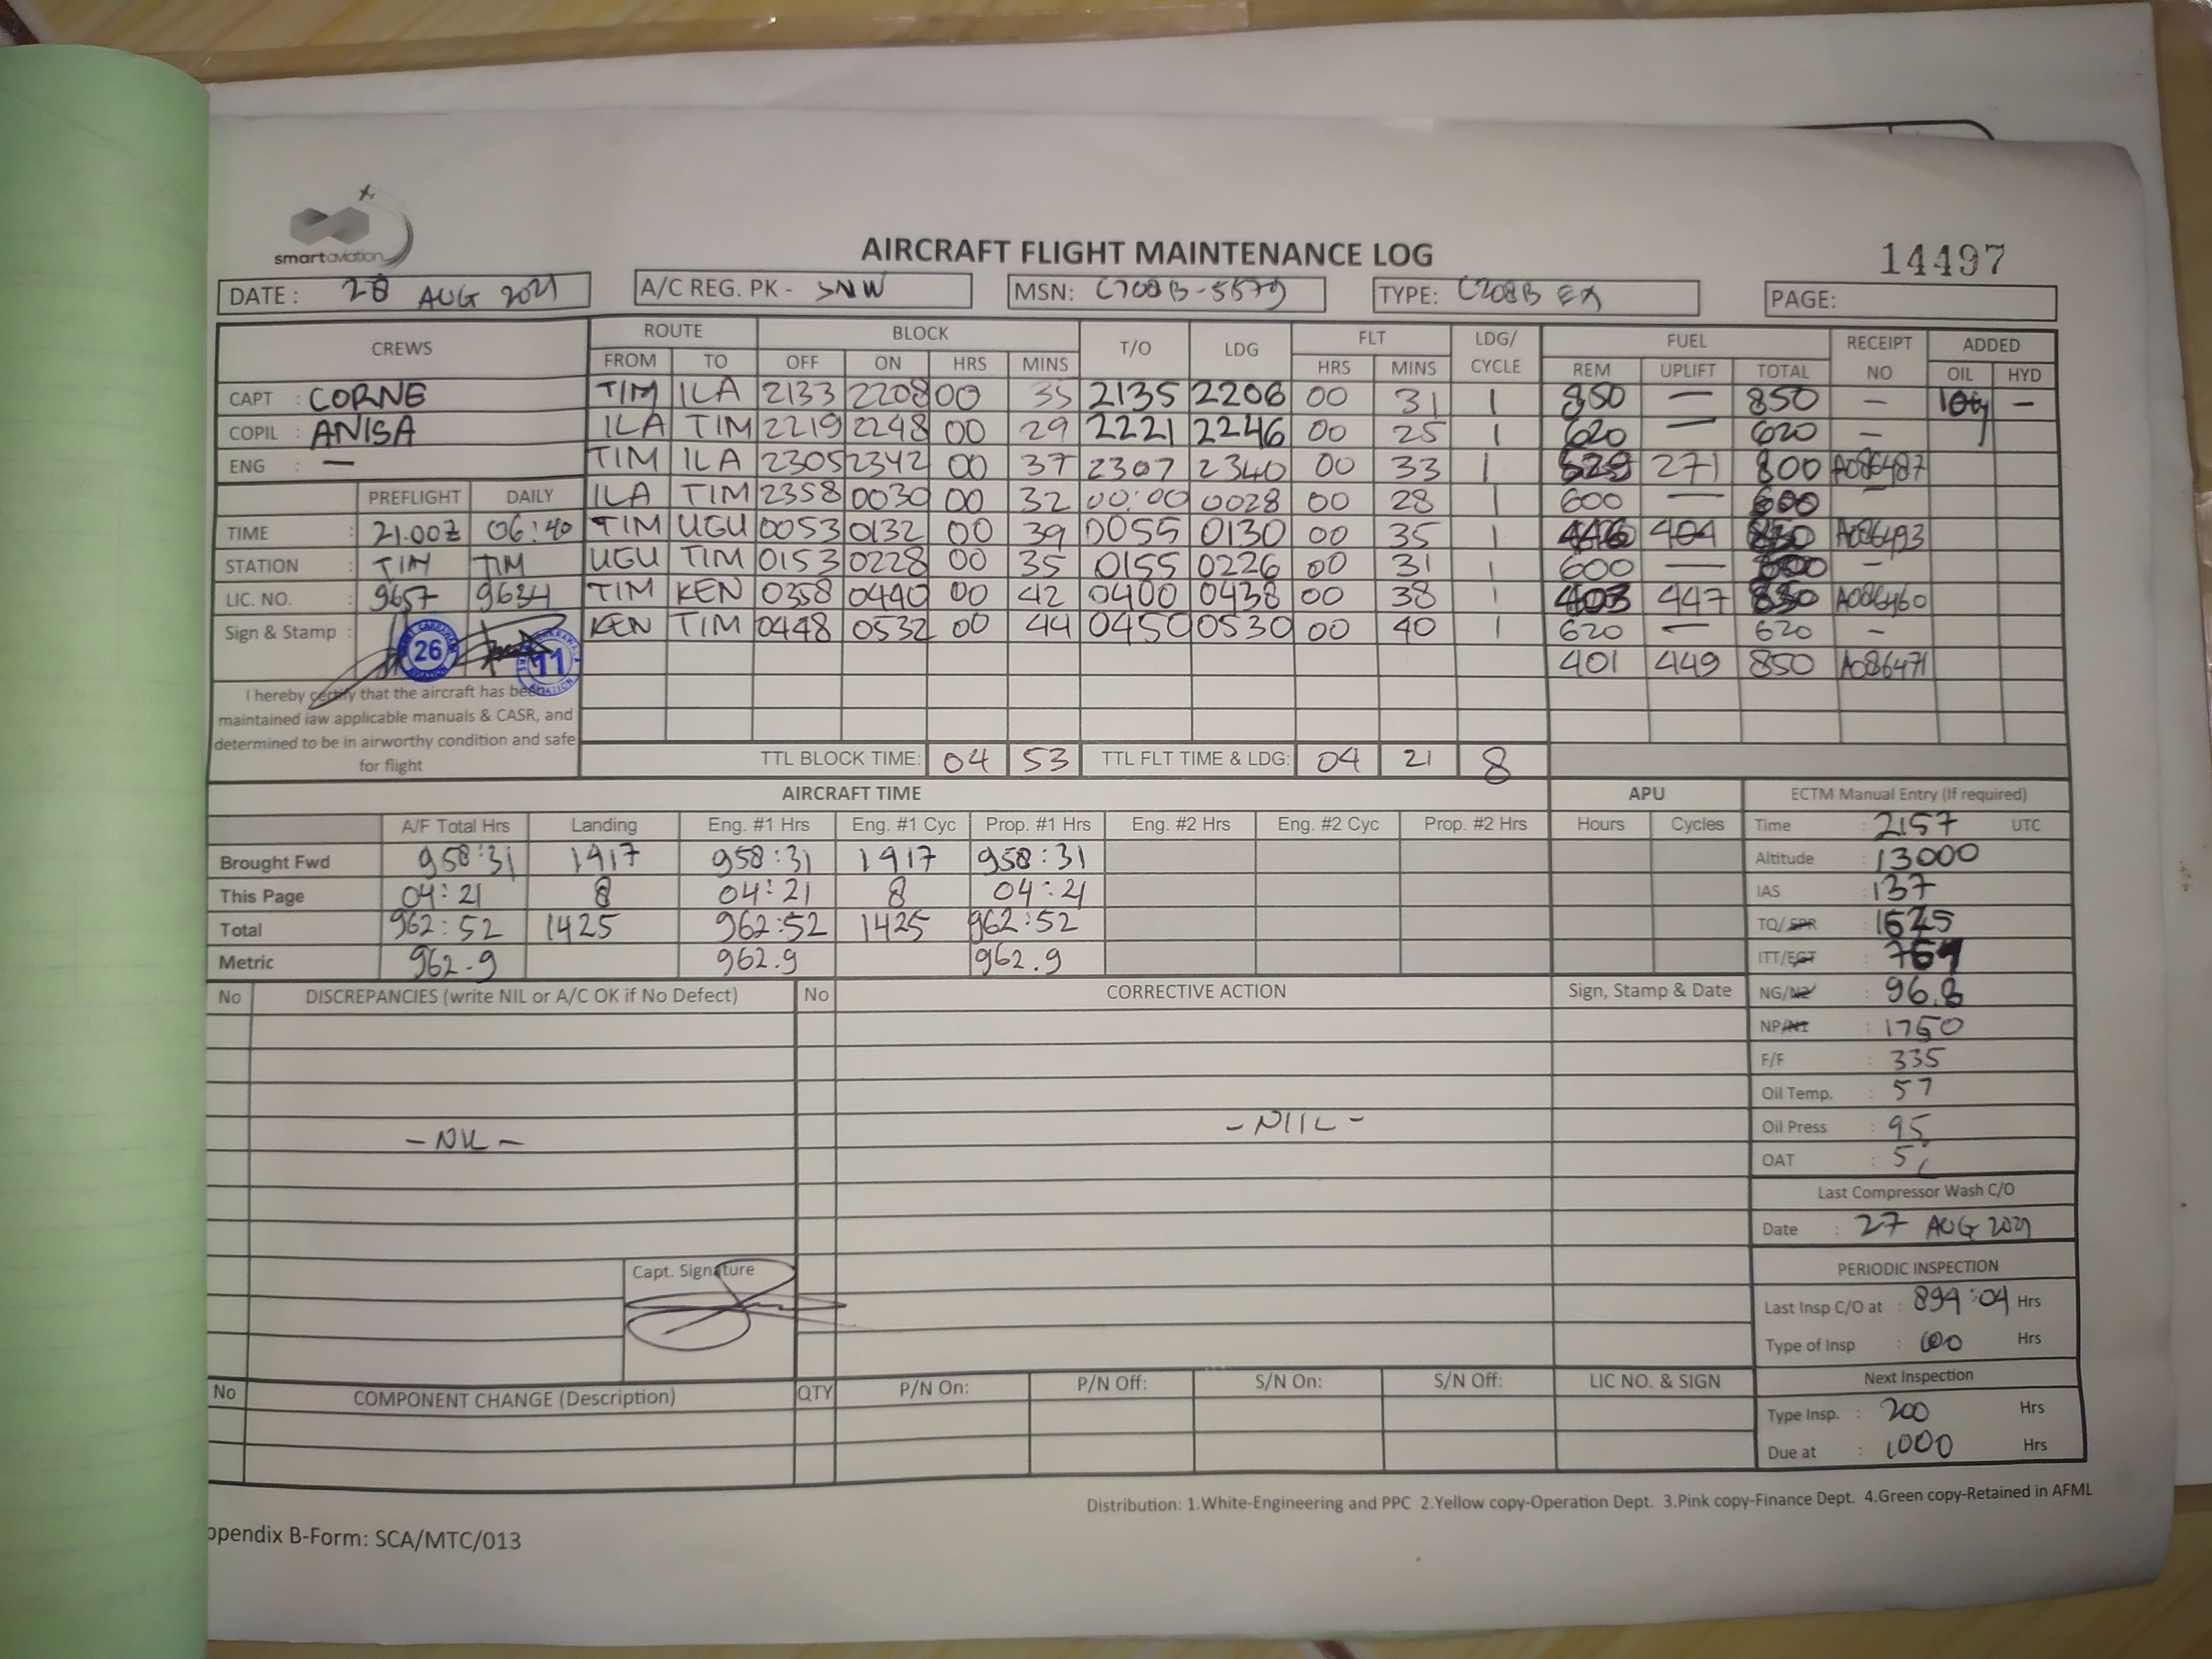 smart aviation
AIRCRAFT FLIGHT MAINTENANCE LOG
14497
DATE : 28 AUG 2021
A/C REG. PK - SNW
MSN: C208B-5579
TYPE: C208B EX
PAGE:
CREWS ROUTE BLOCK T/O LDG FLT LDG/ CYCLE FUEL RECEIPT NO ADDED
FROM TO OFF ON HRS MINS HRS MINS REM UPLIFT TOTAL OIL HYD
CAPT : CORNE TIM ILA 2133 2208 00 35 2135 2206 00 31 1 850 — 850 — —
COPIL : ANISA ILA TIM 2219 2248 00 29 2221 2246 00 25 1 620 — 620 —
ENG : — TIM ILA 2305 2342 00 37 2307 2340 00 33 1 529 271 800 A086487
PREFLIGHT DAILY ILA TIM 2358 0030 00 32 00:00 0028 00 28 1 600 — 600 —
TIME : 21.00Z 06:40 TIM UGU 0053 0132 00 39 0055 0130 00 35 1 446 404 850 A086493
STATION : TIM TIM UGU TIM 0153 0228 00 35 0155 0226 00 31 1 600 — 600 —
LIC. NO. : 9657 9634 TIM KEN 0358 0440 00 42 0400 0438 00 38 1 403 447 850 A086460
Sign & Stamp : 26 11 KEN TIM 0448 0532 00 44 0450 0530 00 40 1 620 — 620 —
401 449 850 A086471
I hereby certify that the aircraft has been
maintained iaw applicable manuals & CASR, and
determined to be in airworthy condition and safe
for flight
TTL BLOCK TIME: 04 53 TTL FLT TIME & LDG: 04 21 8
AIRCRAFT TIME APU ECTM Manual Entry (If required)
A/F Total Hrs Landing Eng. #1 Hrs Eng. #1 Cyc Prop. #1 Hrs Eng. #2 Hrs Eng. #2 Cyc Prop. #2 Hrs Hours Cycles Time : 2157 UTC
Brought Fwd 958:31 1417 958:31 1417 958:31 Altitude : 13000
This Page 04:21 8 04:21 8 04:21 IAS : 137
Total 962:52 1425 962:52 1425 962:52 TQ/SPR : 1625
Metric 962.9 962.9 962.9 ITT/EGT :
No DISCREPANCIES (write NIL or A/C OK if No Defect) No CORRECTIVE ACTION Sign, Stamp & Date NG/N2 : 96.8
NP/N1 : 1750
F/F : 335
Oil Temp. : 57
- NIL - - NIIL -
Oil Press : 95
OAT : 5
Last Compressor Wash C/O
Date : 27 AUG 2021
Capt. Signature
PERIODIC INSPECTION
Last Insp C/O at : 894:04 Hrs
Type of Insp : 100 Hrs
No COMPONENT CHANGE (Description) QTY P/N On: P/N Off: S/N On: S/N Off: LIC NO. & SIGN
Next Inspection
Type Insp. : 200 Hrs
Due at : 1000 Hrs
Distribution: 1.White-Engineering and PPC 2.Yellow copy-Operation Dept. 3.Pink copy-Finance Dept. 4.Green copy-Retained in AFML
ppendix B-Form: SCA/MTC/013